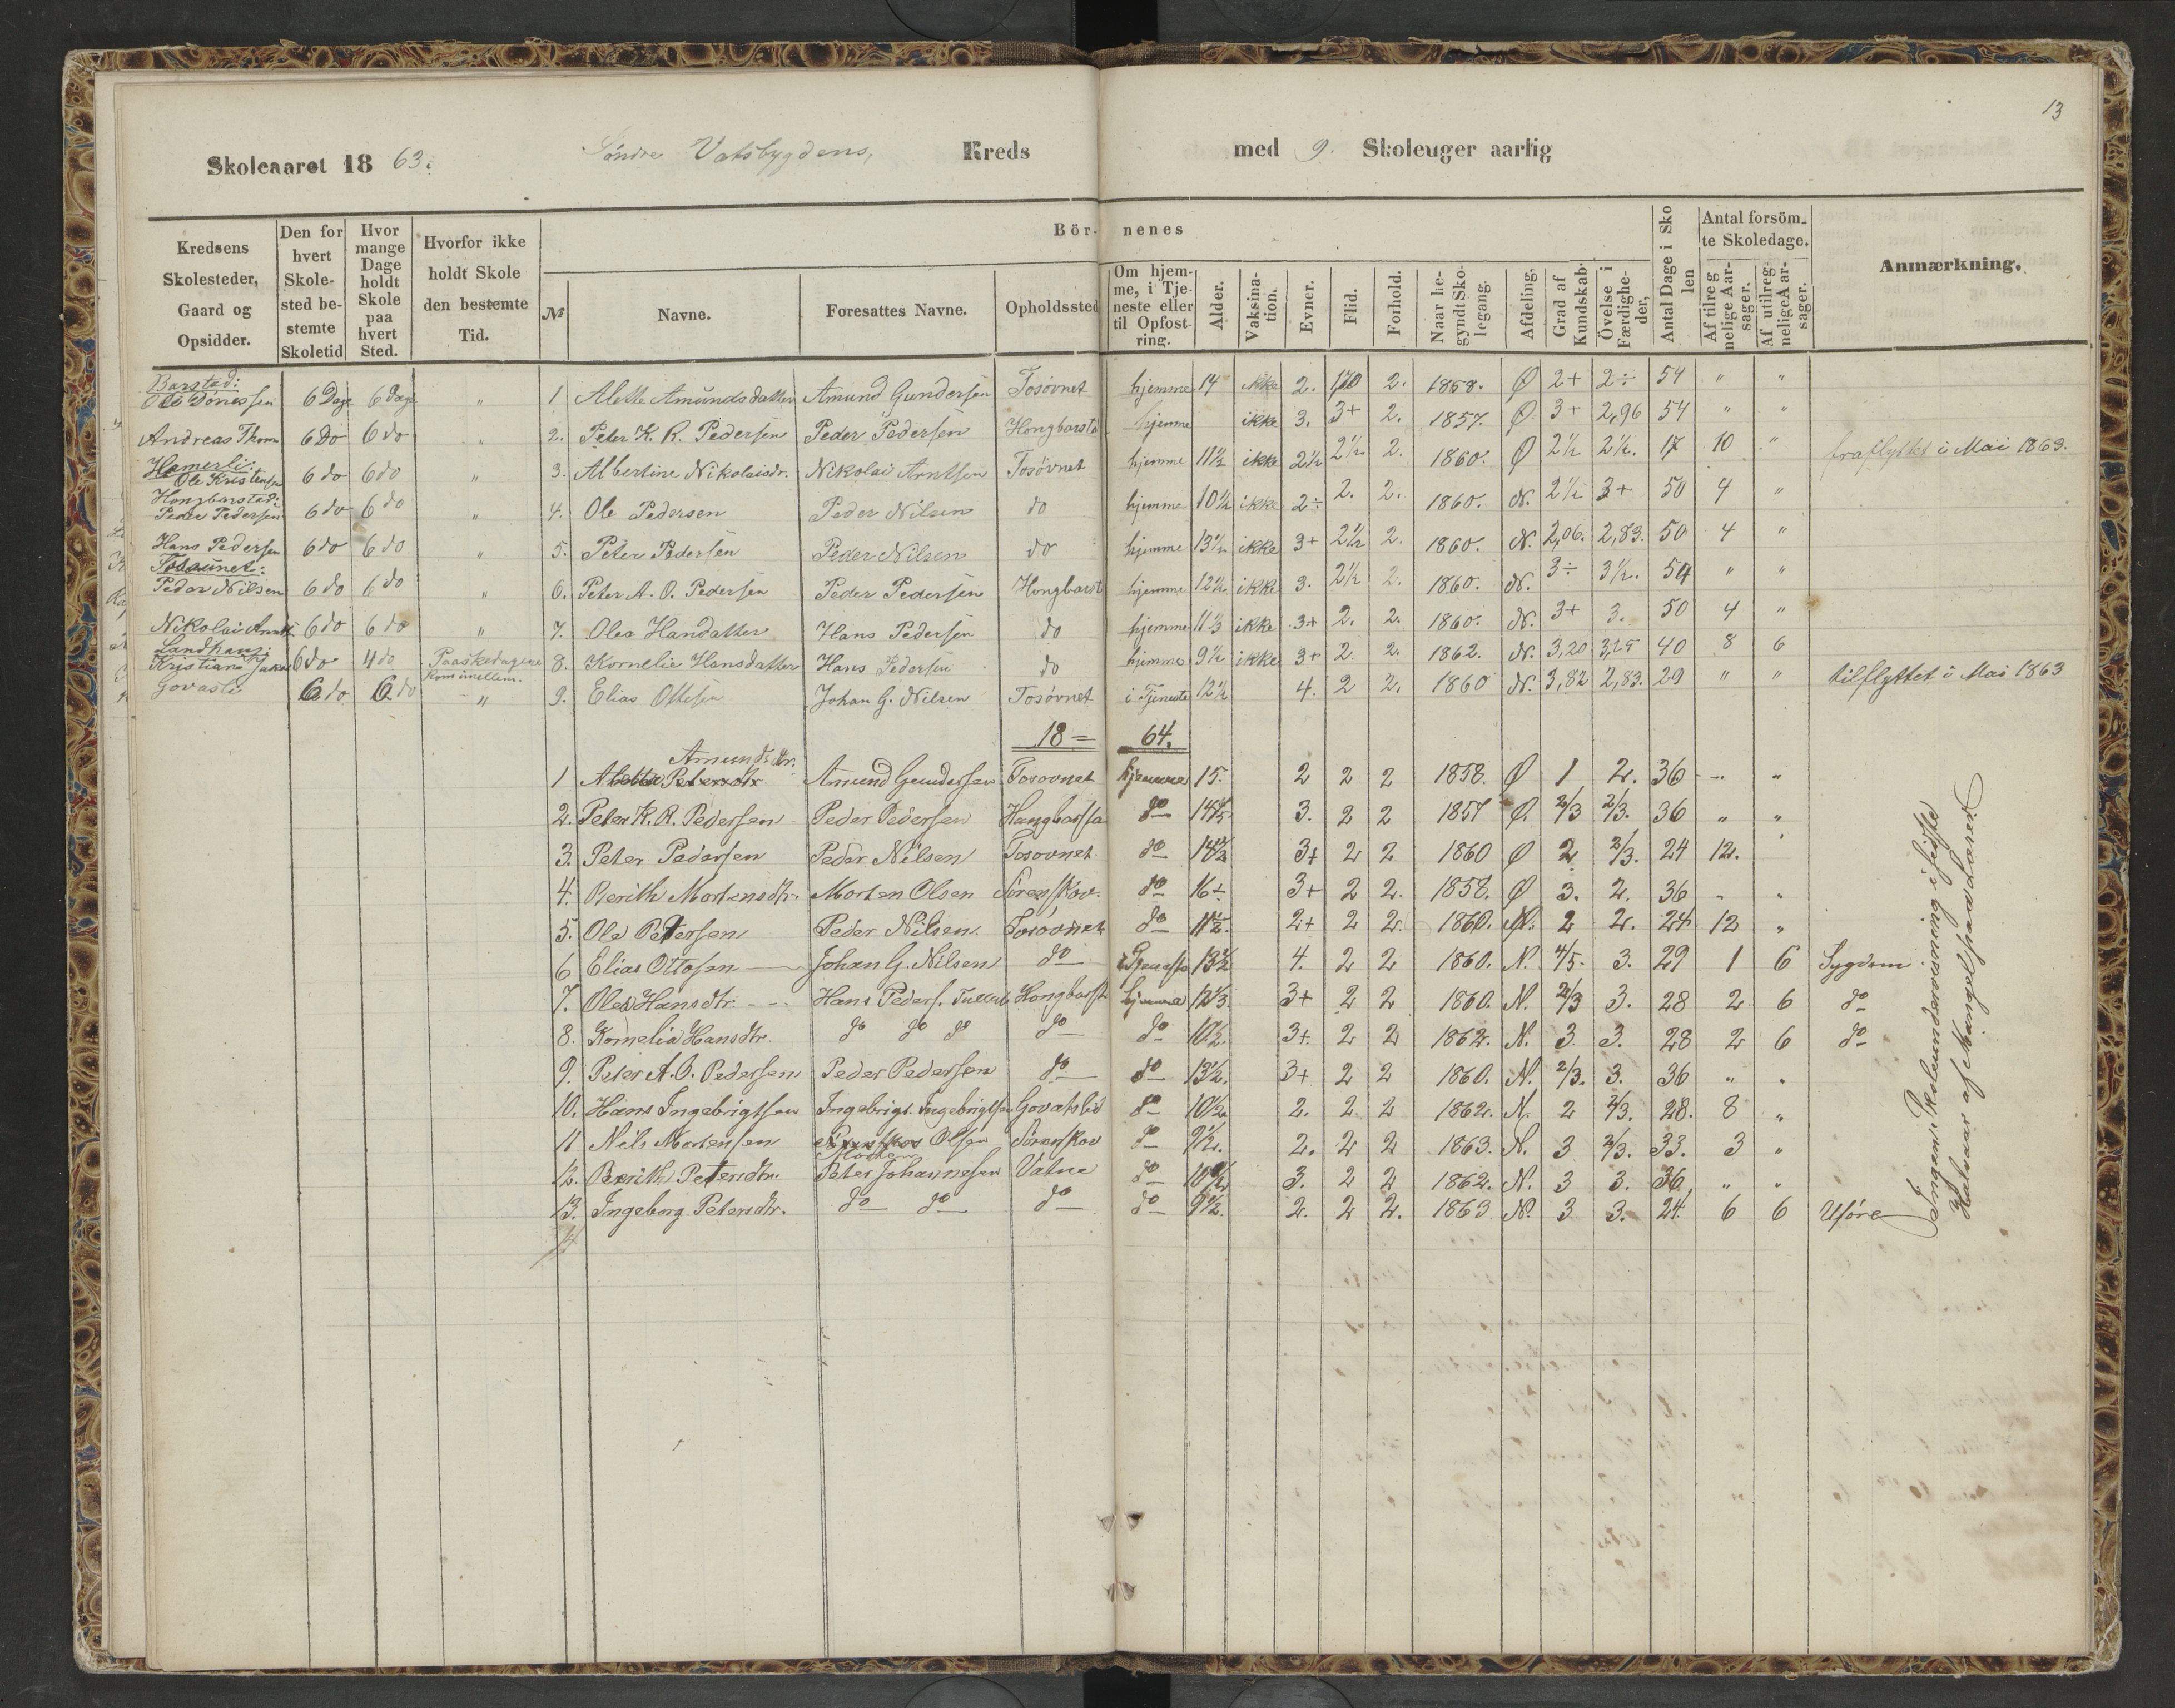 13
Skoleaaret 1863. Søndre Vatsbygdens, Kreds med 9. Skoleuger aarlig
Kredsens Skolesteder, Gaard og Opsidder.
Den for hvert Skolested bestemte Skoletid
Hvor mange Dage holdt Skole paa hvert Sted.
Hvorfor ikke holdt Skole den bestemte Tid.
Börnenes
№
Navne.
Foresattes Navne.
Opholdssted
Om hjemme, i Tjeneste eller til Opfostring.
Alder.
Vaksination.
Evner.
Flid.
Forhold.
Naar begyndt Skolegang.
Afdeling.
Grad af Kundskab.
Övelse i Færdigheder,
Antal Dage i Skolen
Antal forsömte Skoledage.
Af tilregnelige Aarsager.
Af utilregnelige Aarsager.
Anmærkning.
Barstad:
Ole Dönessen 6 Dage 6 Dage "
Andreas Thom 6 Do 6 do "
Hemerli:
Ole Kristensen 6 do 6 do "
Hongbarstad:
Peder Pedersen 6 do 6 do "
Hans Pedersen 6 do 6 do "
Tosaunet:
Peder Nilsen 6 do 6 do "
Nikolai Arnts 6 do 6 do "
Landhaug:
Kristian 6 do 4 do Paaskedagene kom imellem.
Govasli 6 do 6 do "
1 Alette Amundsdatter Amund Gundersen Tosövnet hjemme 14 ikke 2. 2. 1858. Ø 2+ 2÷ 54 " "
2. Peter K. R. Pedersen Peder Pedersen Hongbarsta hjemme ikke 3. 3+ 2. 1857. Ø 3+ 2,96 54 " "
3. Albertine Nikolaisdr. Nikolai Arntsen Tosövnet hjemme 11½ ikke 2½ 2½ 2. 1860. Ø 2½ 2½. 17 10 " fraflyttet i Mai 1863.
4. Ole Pedersen Peder Nilsen do hjemme 10½ ikke 2÷ 2. 2. 1860. N. 2½ 3+ 50 4 "
5. Peter Pedersen Peder Nilsen do hjemme 13½ ikke 3+ 2½ 2. 1860. N. 2,06. 2,83. 50 4 "
6. Peter A. O. Pedersen Peder Pedersen Hongbarst hjemme 12½ ikke 3. 2½ 2. 1860. N. 3÷ 3½. 54 " "
7. Olea Handatter Hans Pedersen do hjemme 11⅓ ikke 3+ 2. 2. 1860. N. 3+ 3. 50 4 "
8. Kornelie Hansdatter Hans Pedersen do hjemme 9½ ikke 3+ 2. 2. 1862. N. 3,20 3,25 40 8 6
9. Elias Ottesen Johan G. Nilsen Tosövnet i Tjeneste 12½ 4. 2 2. 1860 N. 3,82 2,83. 29 " " tilflyttet i Mai 1863
18 = 64.
Amundsdtr.
1 Alette Petersdtr. Amund Gundersen Tosovnet hjemme 15. 2 2 2 1858. Ø 1 2. 36 " "
2. Peter K. R. Pedersen Peder Pedersen Hangbarsta do 3. 2 2 1857 Ø. 2/3 2/3. 36 " "
3. Peter Pedersen Peder Nilsen Tosovnet. do 14½ 3+ 2 2 1860 Ø 2 2/3. 24 12. "
4. Berith Mortensdtr. Morten Olsen Sörenskov. do 16÷ 3+ 2 2. 1858. Ø 3. 2. 36 " "
5. Ole Petersen Peder Nilsen. Tosövnet do 11½. 2+ 2 2. 1860. N. 2 2. 24 12 "
6 Elias Ottosen Johan G. Nilsen do i Tjeneste 13½ 4. 2 2 1860. N. 4/5. 3. 29 1 6 Sygdom
7. Olea Hansdtr. Hans Peders. Hongbarst hjemme 12⅓ 3+ 2 2 1860. N. 2/3 3. 28 2 6 do
8. Kornelia Hansdtr. do do do do do 10½. 3+. 2 2 1862. N. 3 3. 28 2 6 do
9. Peter A. O. Pedersen Peder Pedersen do do 13½. 3+ 2 2 1860. N. 2/3. 3. 36 " "
10. Hans Ingebrigtsen Ingebrigt Ingebrigtsen Govatslid do 10½ 2. 2 2 1862. N. 2 2/3. 28. 8 "
11 Nils Mortensen Morten Olsen Sörenskov do 9½. 2. 2 2 1863. N. 3 2/3. 33. 3 "
12. Berith Petersdtr. Peter Johannesen Vatne do 10½ 3. 2 2 1862. N. 3 3. 36 " "
13. Ingeborg Petersdtr. do do do do 9½. 2. 2 2. 1863 N. 3 3. 24 6 6 Uföre
14
Ingen Skoleundervisning i sidste Halvaar af Mangel paa Lærer.